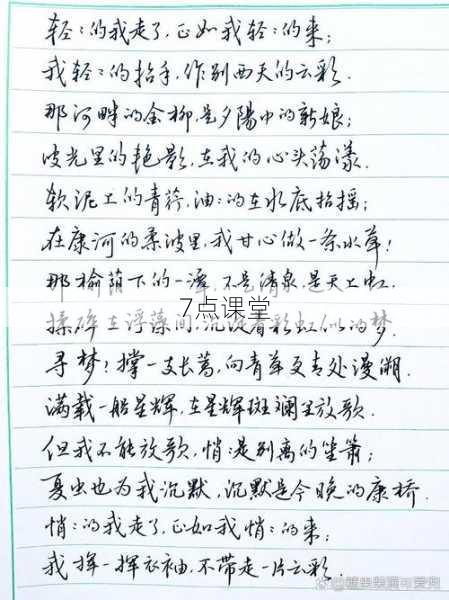 轻:的我走了,正如我轻:的来;
我轻:的招手,作别西天的云彩.
那河畔的金柳,是夕陽中的新娘;
波光里的艳影,在我的心头荡漾.
软泥上的青荇,油:的在水底招摇;
在康河的柔波里,我甘心做一条水草!
那榆荫下的一潭,不是清泉,是天上虹.
7点课堂
揉碎在浮藻间,沉淀着彩虹似的梦.
寻梦?撑一支长蒿,向青草更青处漫溯.
满载一船星辉,在星辉斑斓里放歌.
但我不能放歌,悄:是别离的笙箫;
夏虫也为我沉默,沉默是今晚的康桥.
悄:的我走了,正如我悄:的来;
我挥一挥衣袖,不带走一片云彩.